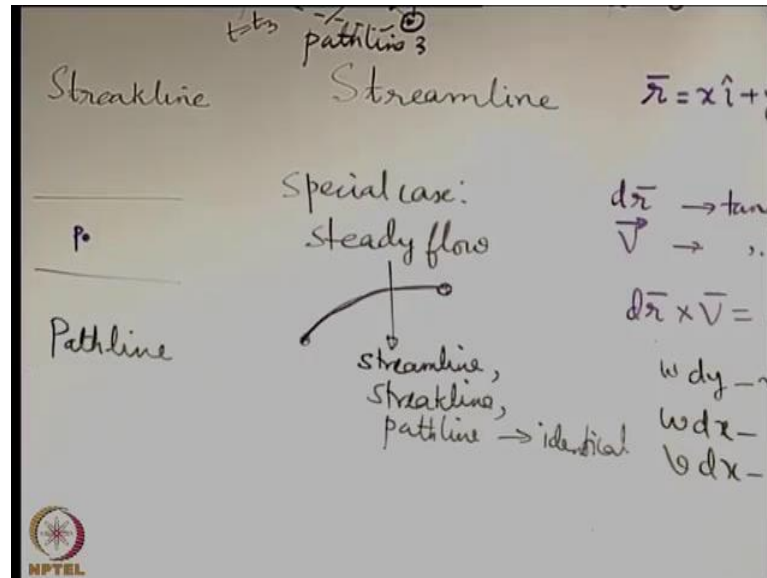 t=t3 pathline 3
Streakline Streamline r̄ = x î +
Special case:
steady flow
P
Pathline
streamline,
streakline,
pathline → identical
dr̄ → tan
V⃗ →
dr̄ × V̄ =
w dy -
w dx -
v dx -
NPTEL